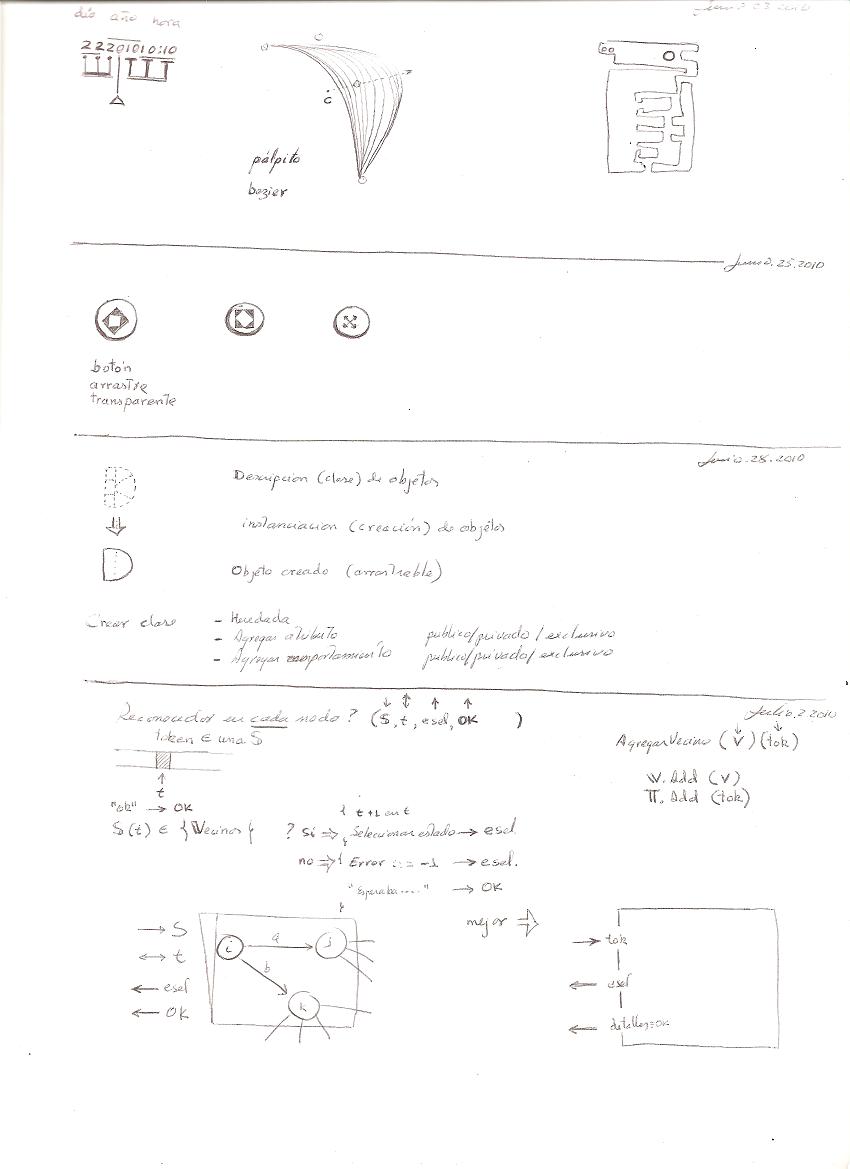 dia año hora
Junio 03 2010
222010 10:10
C
c
pálpito
bezier
Junio.25.2010
botón
arrastre
transparente
Junio.28.2010
Descripcion (clase) de objetos
instanciacion (creación) de objetos
Objeto creado (arrastrable)
Crear clase
- Heredada
- Agregar atributo publico/privado/exclusivo
- Agregar comportamiento publico/privado/exclusivo
Julio.2 2010
Reconocedor en cada nodo? (S, t, esel, OK )
token ∈ una S
AgregarVecino (v)(tok)
t
V.Add (v)
T.Add (tok)
"ok" → OK
{ t+1 en t
S(t) ∈ {Vecinos} ? si ⇒ Seleccionar estado → esel
no ⇒ { Error := -1 → esel.
"Esperaba....." → OK
}
mejor ⇒
→ S
↔ t
← esel
← OK
i
a
j
b
k
→ tok
← esel
← detalles=OK